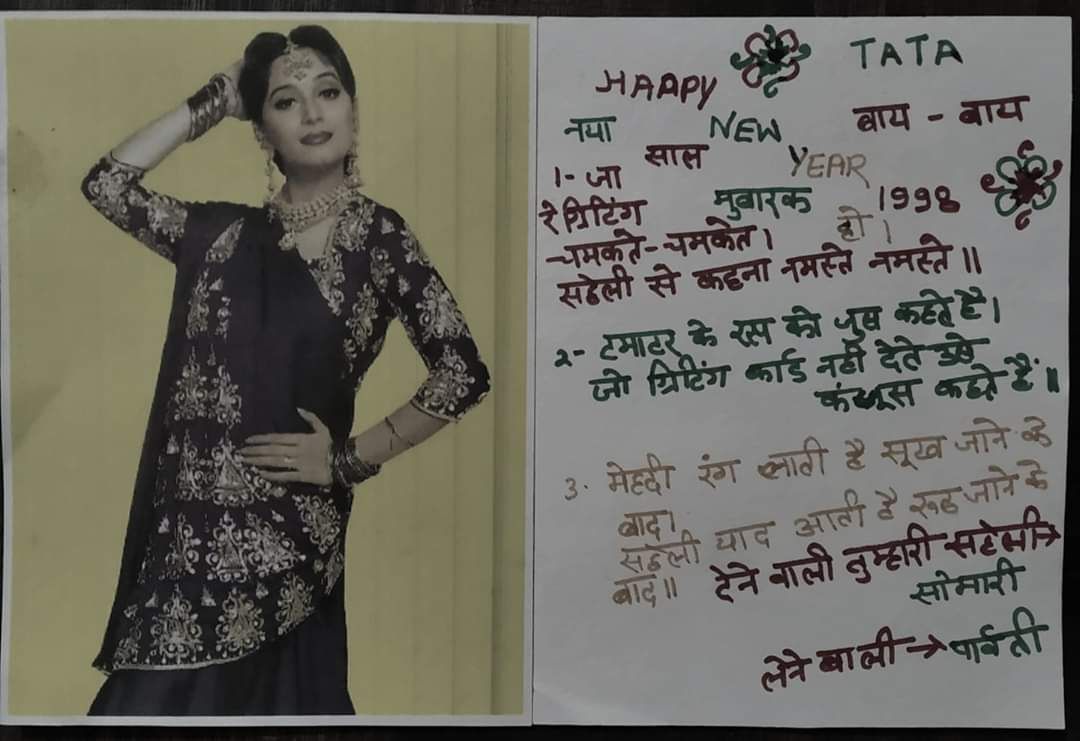 HAAPY TATA
नया NEW बाय - बाय
साल YEAR
1- जा मुबारक 1998
रे ग्रिटिंग हो।
चमकते-चमकेत।
सहेली से कहना नमस्ते नमस्ते॥
2- टमाटर के रस को जुस कहते है।
जो ग्रिटिंग कार्ड नही देते उसे
कंजूस कहते हैं॥
3. मेहदी रंग लाती है सूख जाने के
बाद।
सहेली याद आती है रूठ जाने के
बाद॥ देने वाली तुम्हारी सहेली→
सोमारी
लेने वाली → पार्वती